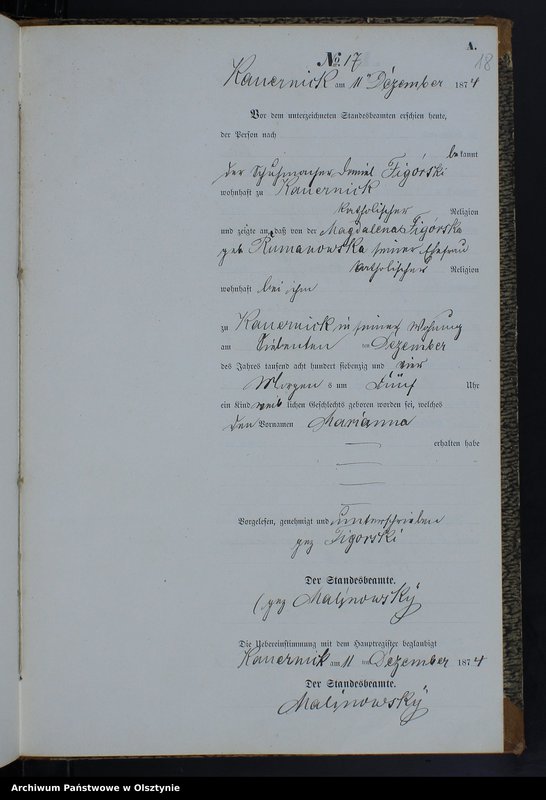 A.
18
No. 17
Kauernick am 11ten Dezember 1874
Vor dem unterzeichneten Standesbeamten erschien heute,
der Person nach
bekannt
der Schuhmacher Figórski
wohnhaft zu Kauernick
katholischer Religion
und zeigte an, daß von der Magdalena Figórska
geb Rumanowska seiner Ehefrau
katholischer Religion
wohnhaft bei ihm
zu Kauernick in seiner Wohnung
am Siebenten ten Dezember
des Jahres tausend acht hundert siebenzig und vier
Morgens um Fünf Uhr
ein Kind weiblichen Geschlechts geboren worden sei, welches
den Vornamen Marianna
erhalten habe
Vorgelesen, genehmigt und unterschrieben
gez Figorski
Der Standesbeamte.
(gez Malinowský
Die Uebereinstimmung mit dem Hauptregister beglaubigt
Kauernick am 11 ten Dezember 1874
Der Standesbeamte.
Malinowský
Archiwum Państwowe w Olsztynie